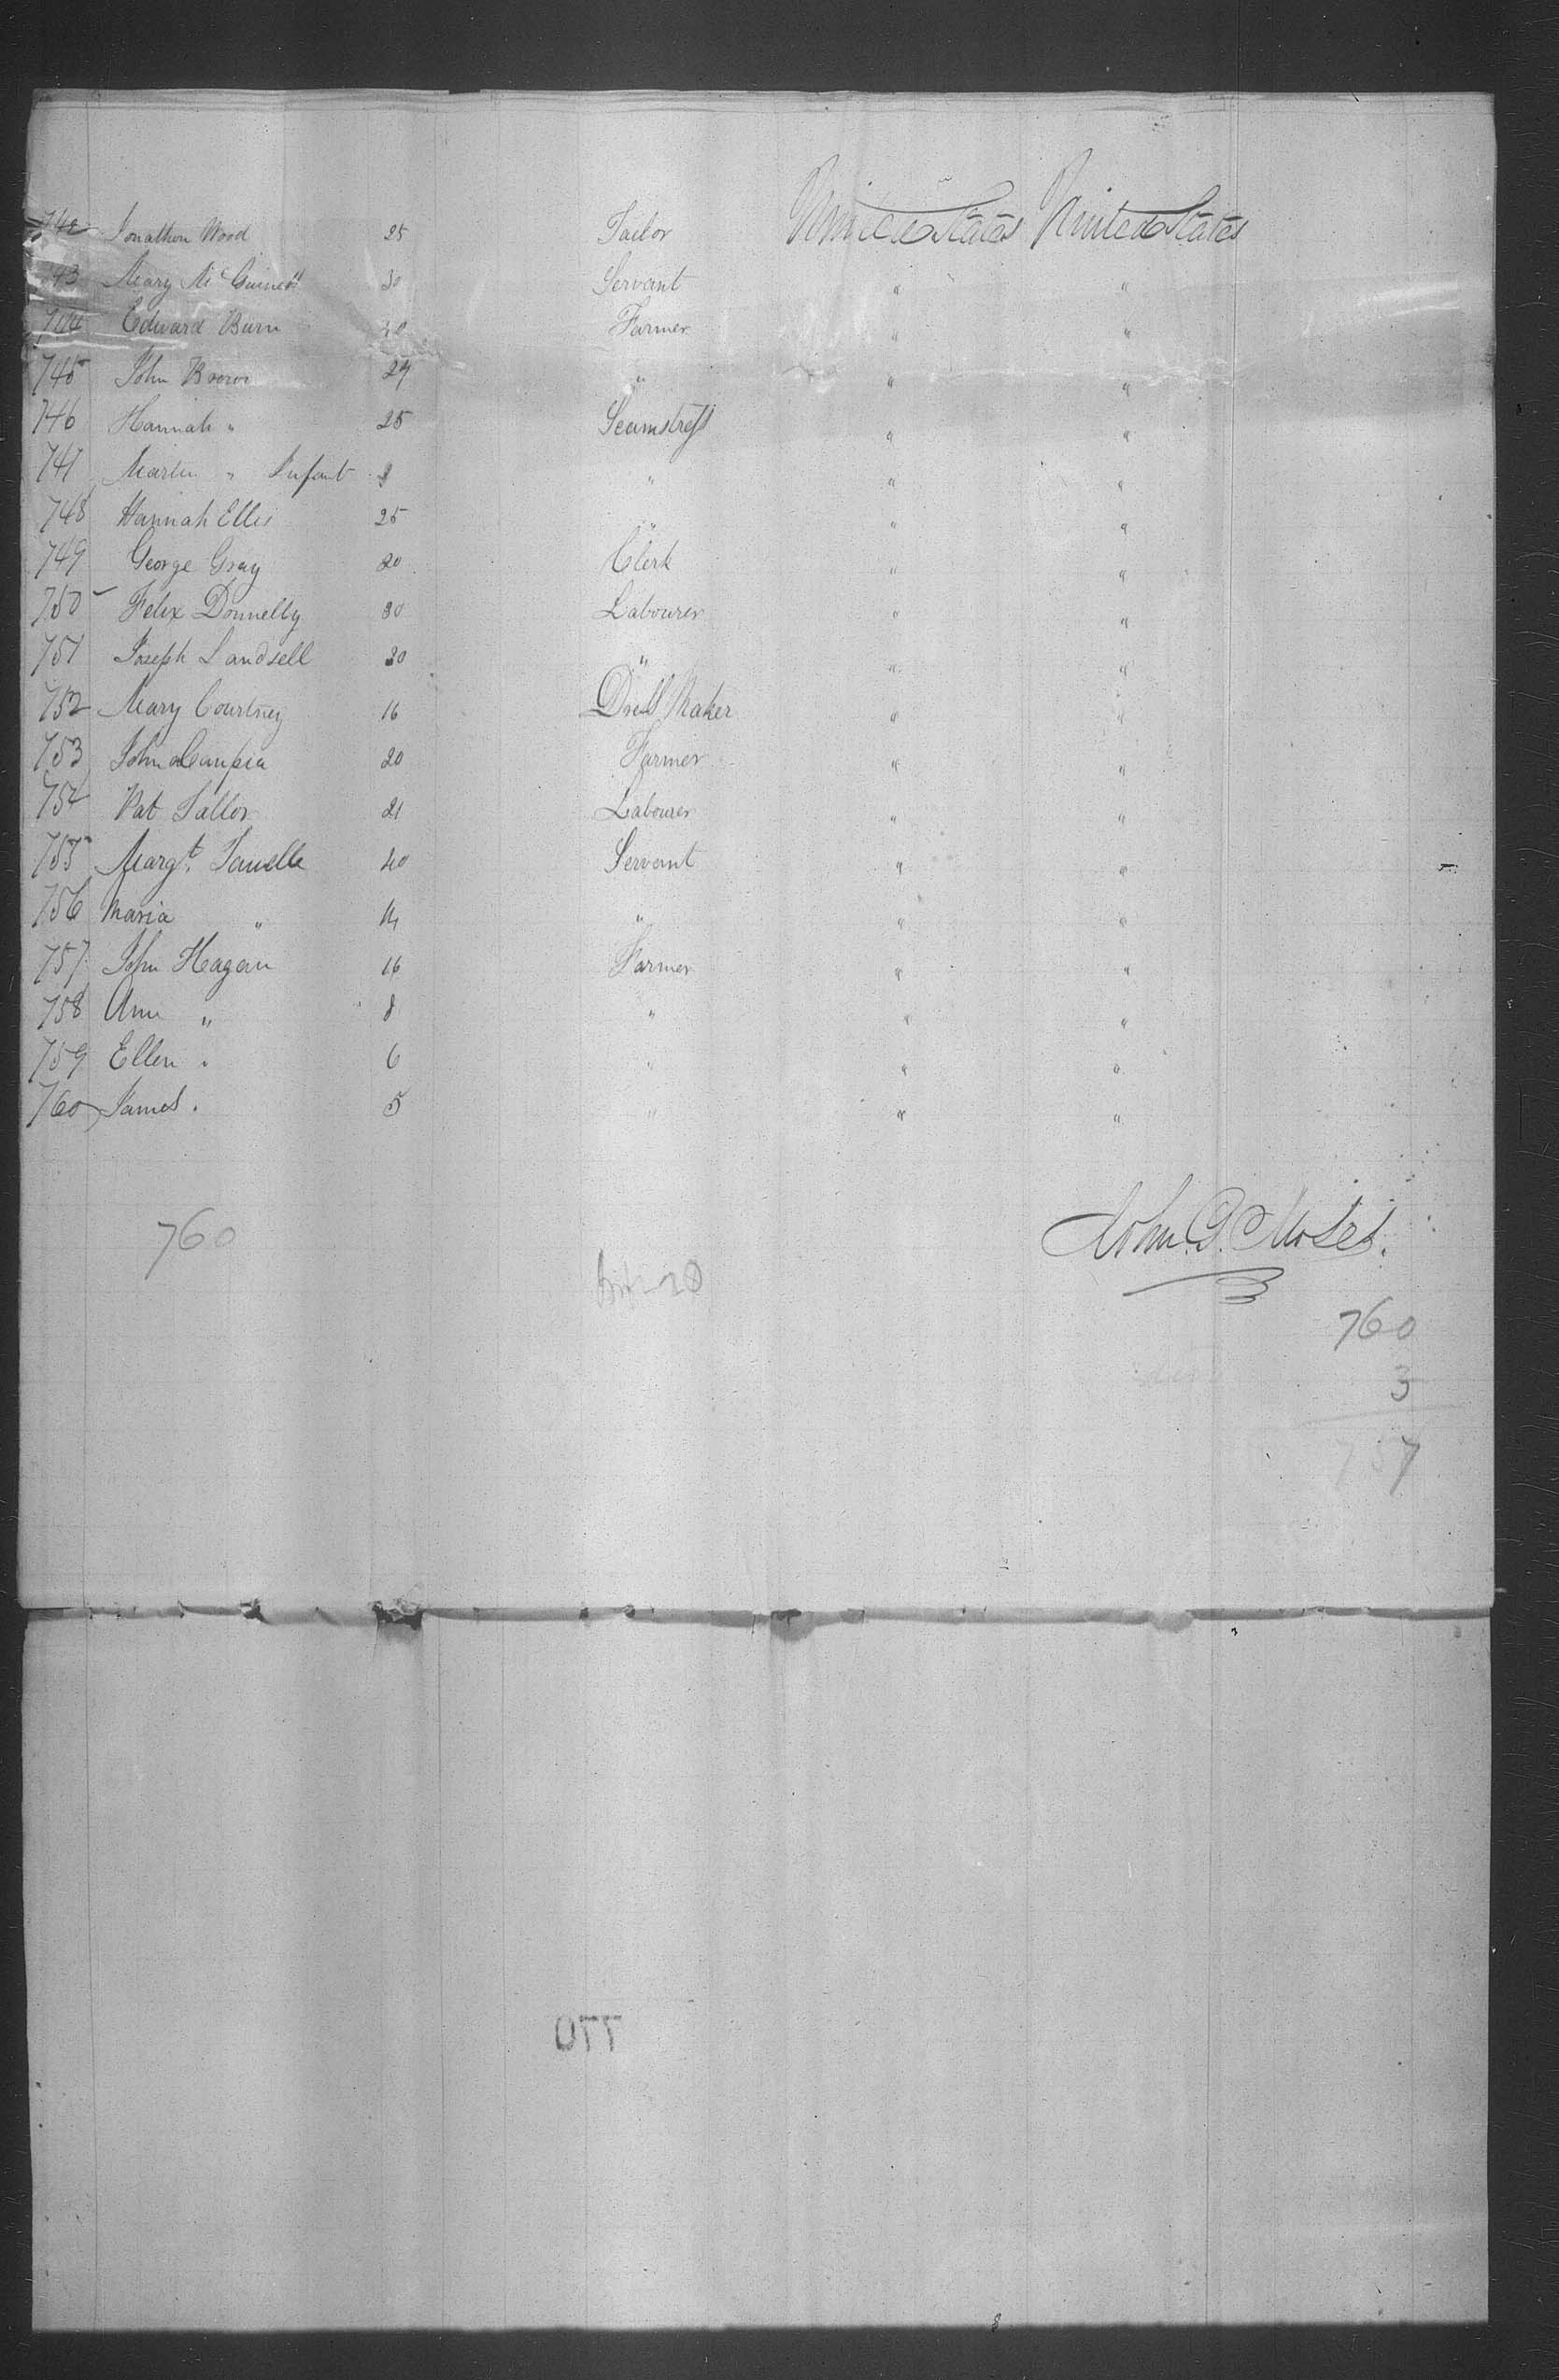 742 Jonathan Wood 25 Tailor United States United States
743 Mary McGuiness 30 Servant " "
744 Edward Burn 40 Farmer " "
745 John Brown 29 " " "
746 Hannah " 25 Seamstress " "
747 Martin " Infant " " "
748 Hannah Ellis 25 " " "
749 George Gray 20 Clerk " "
750 Felix Donnelly 30 Labourer " "
751 Joseph Landsell 30 " " "
752 Mary Courtney 16 Dress Maker " "
753 John 20 Farmer " "
754 Pat 21 Labourer " "
755 Margt. 40 Servant " "
756 Maria " 14 " " "
757 John Hagan 16 Farmer " "
758 Ann " 8 " " "
759 Ellen " 6 " " "
760 James " 5 " " "
John G. Moses.
760
760
3
757
770